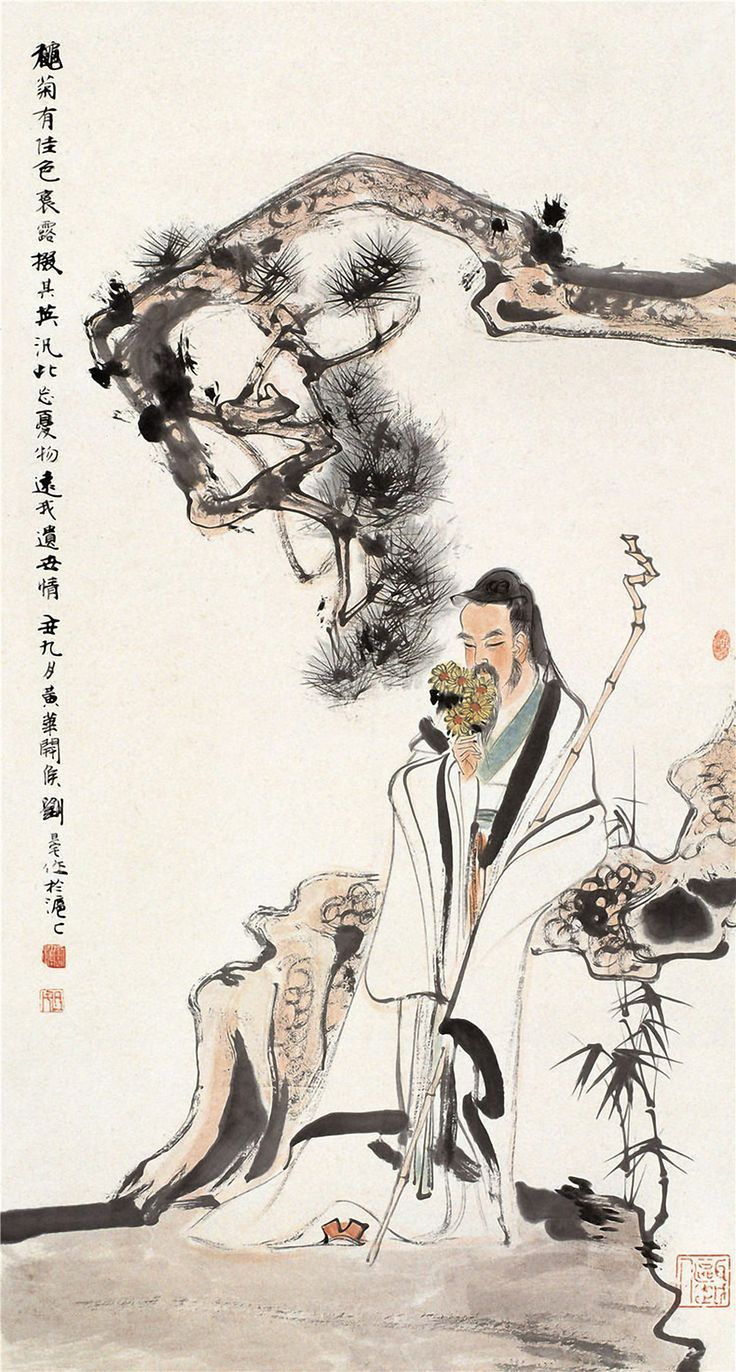 穐菊有佳色裛露掇其英汎此忘憂物遠我遺世情 丑九月黃華開候劉旦宅作於滬上